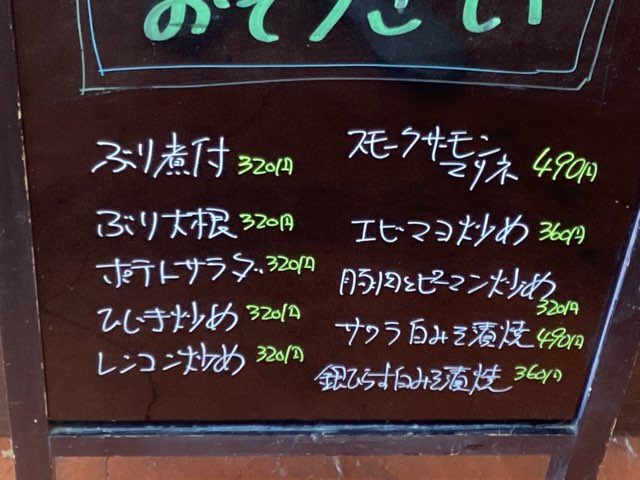 おそうざい
ぶり煮付 320円
ぶり大根 320円
ポテトサラダ 320円
ひじき炒め 320円
レンコン炒め 320円
スモークサーモン
マリネ 490円
エビマヨ炒め 360円
豚肉とピーマン炒め
320円
サワラ白みそ漬焼 490円
銀ひらす白みそ漬焼 360円